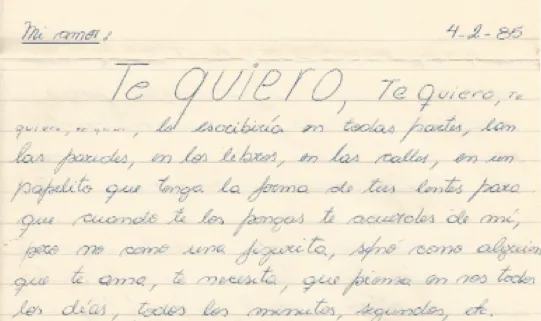 Mi amor: 4-2-85
Te quiero, Te quiero, te
quiero, te quiero, lo escibiría en todas partes, en
las paredes, en los lebros, en las calles, en un
papelito que tenga la forma de tus lentes para
que cuando te los pongas te acuerdes de mí,
pero no como una figurita, sinó como alguien
que te ama, te necesita, que piensa en vos todos
los días, todos los minutos, segundos, etc.